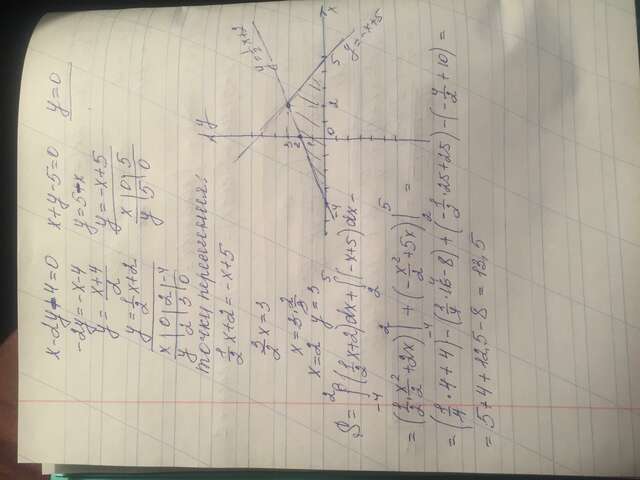 x-2y+4=0 x+y-5=0 y=0
-2y=-x-4 y=5-x
y=\frac{x+4}{2} y=-x+5
y=\frac{1}{2}x+2 x | 0 | 5
x | 0 | 2 | -4 y | 5 | 0
y | 2 | 3 | 0
точки пересечения:
\frac{1}{2}x+2=-x+5
\frac{3}{2}x=3
x=3·\frac{2}{3}
x=2 y=3
y
y=\frac{1}{2}x+2
3
2
-4 0 2 5 x
y=-x+5
S=\int_{-4}^{2}(\frac{1}{2}x+2)dx+\int_{2}^{5}(-x+5)dx=
=(\frac{1}{2}·\frac{x^2}{2}+2x)|_{-4}^{2}+(-\frac{x^2}{2}+5x)|_{2}^{5}=
=(\frac{1}{4}·4+4)-(\frac{1}{4}·16-8)+(-\frac{1}{2}·25+25)-(-\frac{4}{2}+10)=
=5+4+12,5-8=13,5